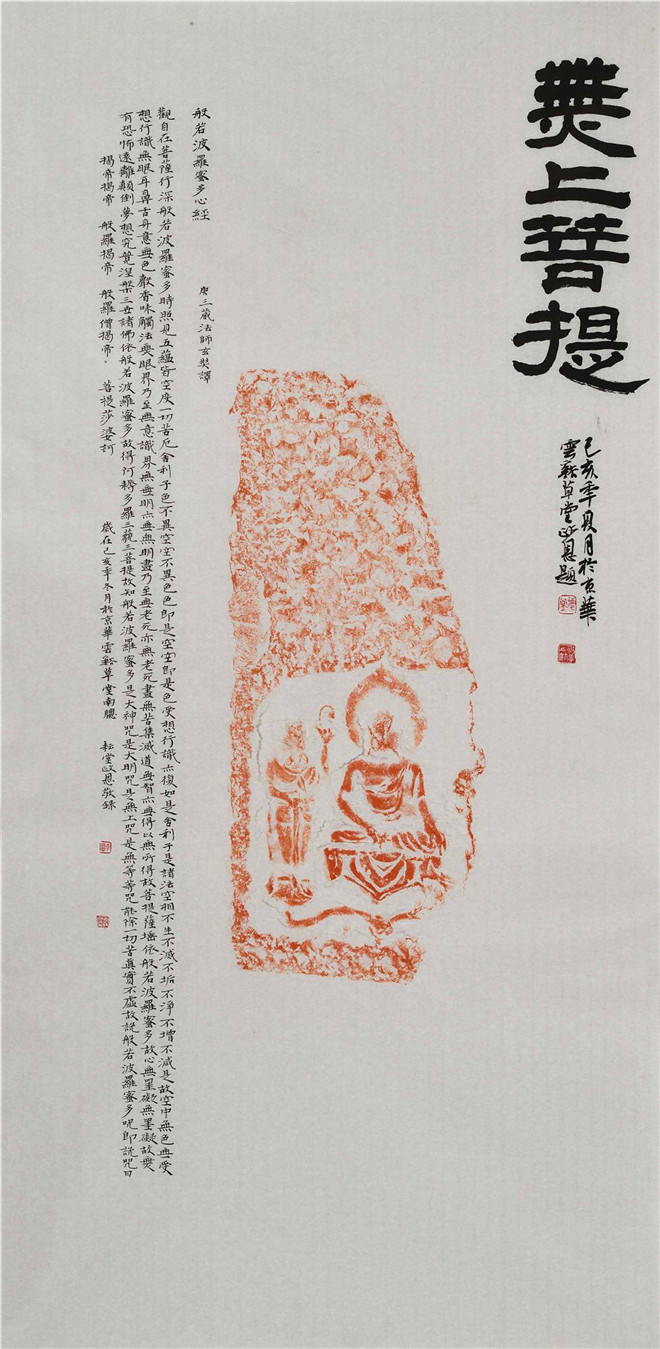 無上菩提
己亥年夏月於京華
雲谿草堂政恩題
般若波羅蜜多心經 唐三藏法師玄奘譯
觀自在菩薩行深般若波羅蜜多時照見五蘊皆空度一切苦厄舍利子色不異空空不異色色即是空空即是色受想行識亦復如是舍利子是諸法空相不生不滅不垢不淨不增不減是故空中無色無受
想行識無眼耳鼻舌身意無色聲香味觸法無眼界乃至無意識界無無明亦無無明盡乃至無老死亦無老死盡無苦集滅道無智亦無得以無所得故菩提薩埵依般若波羅蜜多故心無罣礙無罣礙故無
有恐怖遠離顛倒夢想究竟涅槃三世諸佛依般若波羅蜜多故得阿耨多羅三藐三菩提故知般若波羅蜜多是大神咒是大明咒是無上咒是無等等咒能除一切苦真實不虛故說般若波羅蜜多咒即說咒曰
揭帝揭帝 般羅揭帝 般羅僧揭帝 菩提莎婆訶 歲在己亥年冬月於京華雲谿草堂南牕 耘堂政恩敬錄